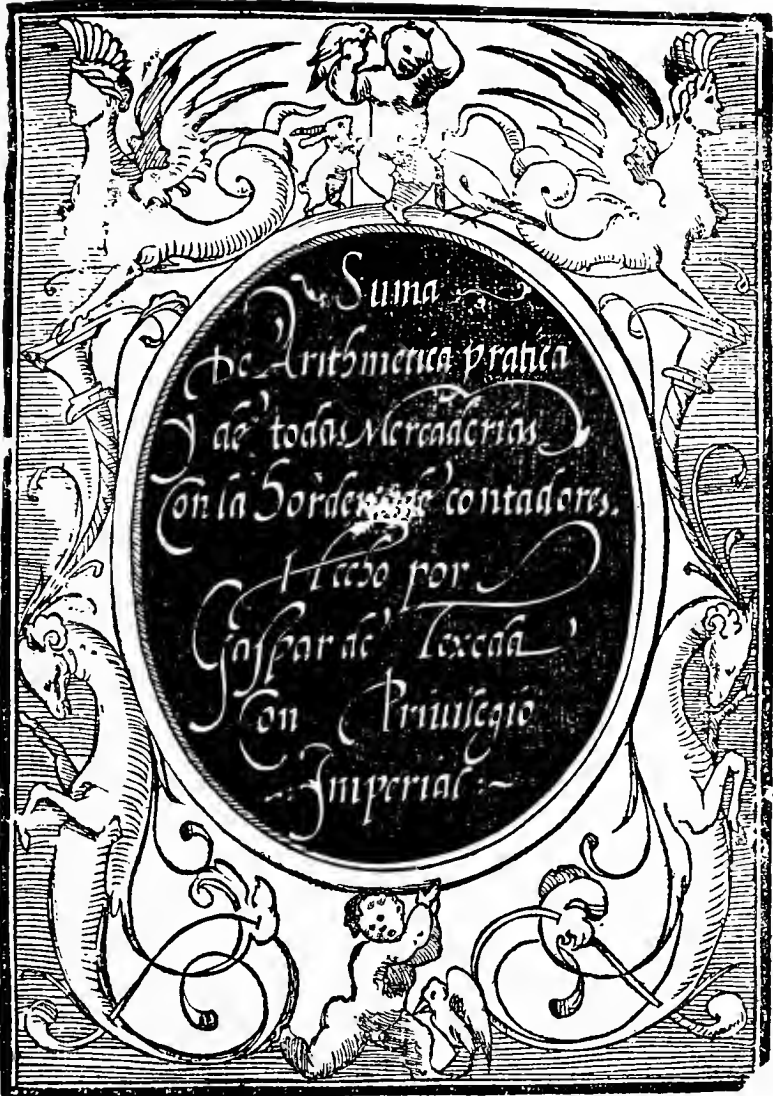 Suma
De Arithmetica pratica
y de todas Mercaderias
Con la horden de contadores.
Hecho por
Gaspar de Texeda
Con Priuilegio
Imperial